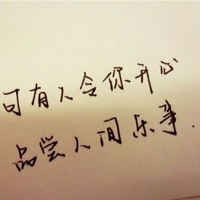 可有人令你开心
品尝人间乐事.